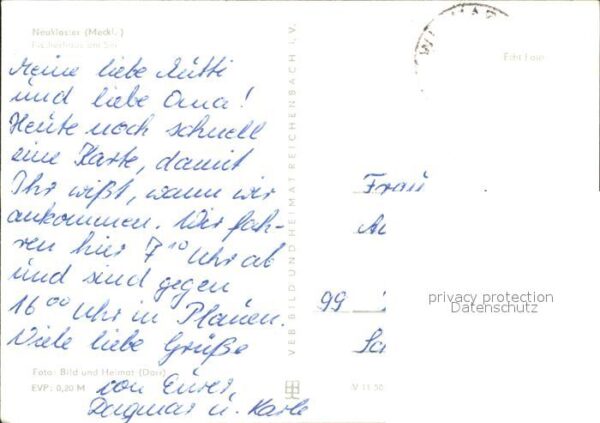 Neukloster (Meckl.)
Fischerhaus am See
Meine liebe Mutti
und liebe Oma!
Heute noch schnell
eine Karte, damit
Ihr wißt, wann wir
ankommen. Wir fah-
ren hier 7 10 Uhr ab
und sind gegen
16 00 Uhr in Plauen.
Viele liebe Grüße
von Eurer
Dagmar u. Karle
Foto: Bild und Heimat (Darr)
EVP: 0,20 M
VEB BILD UND HEIMAT REICHENBACH i. V.
Frau
99
privacy protection
Datenschutz